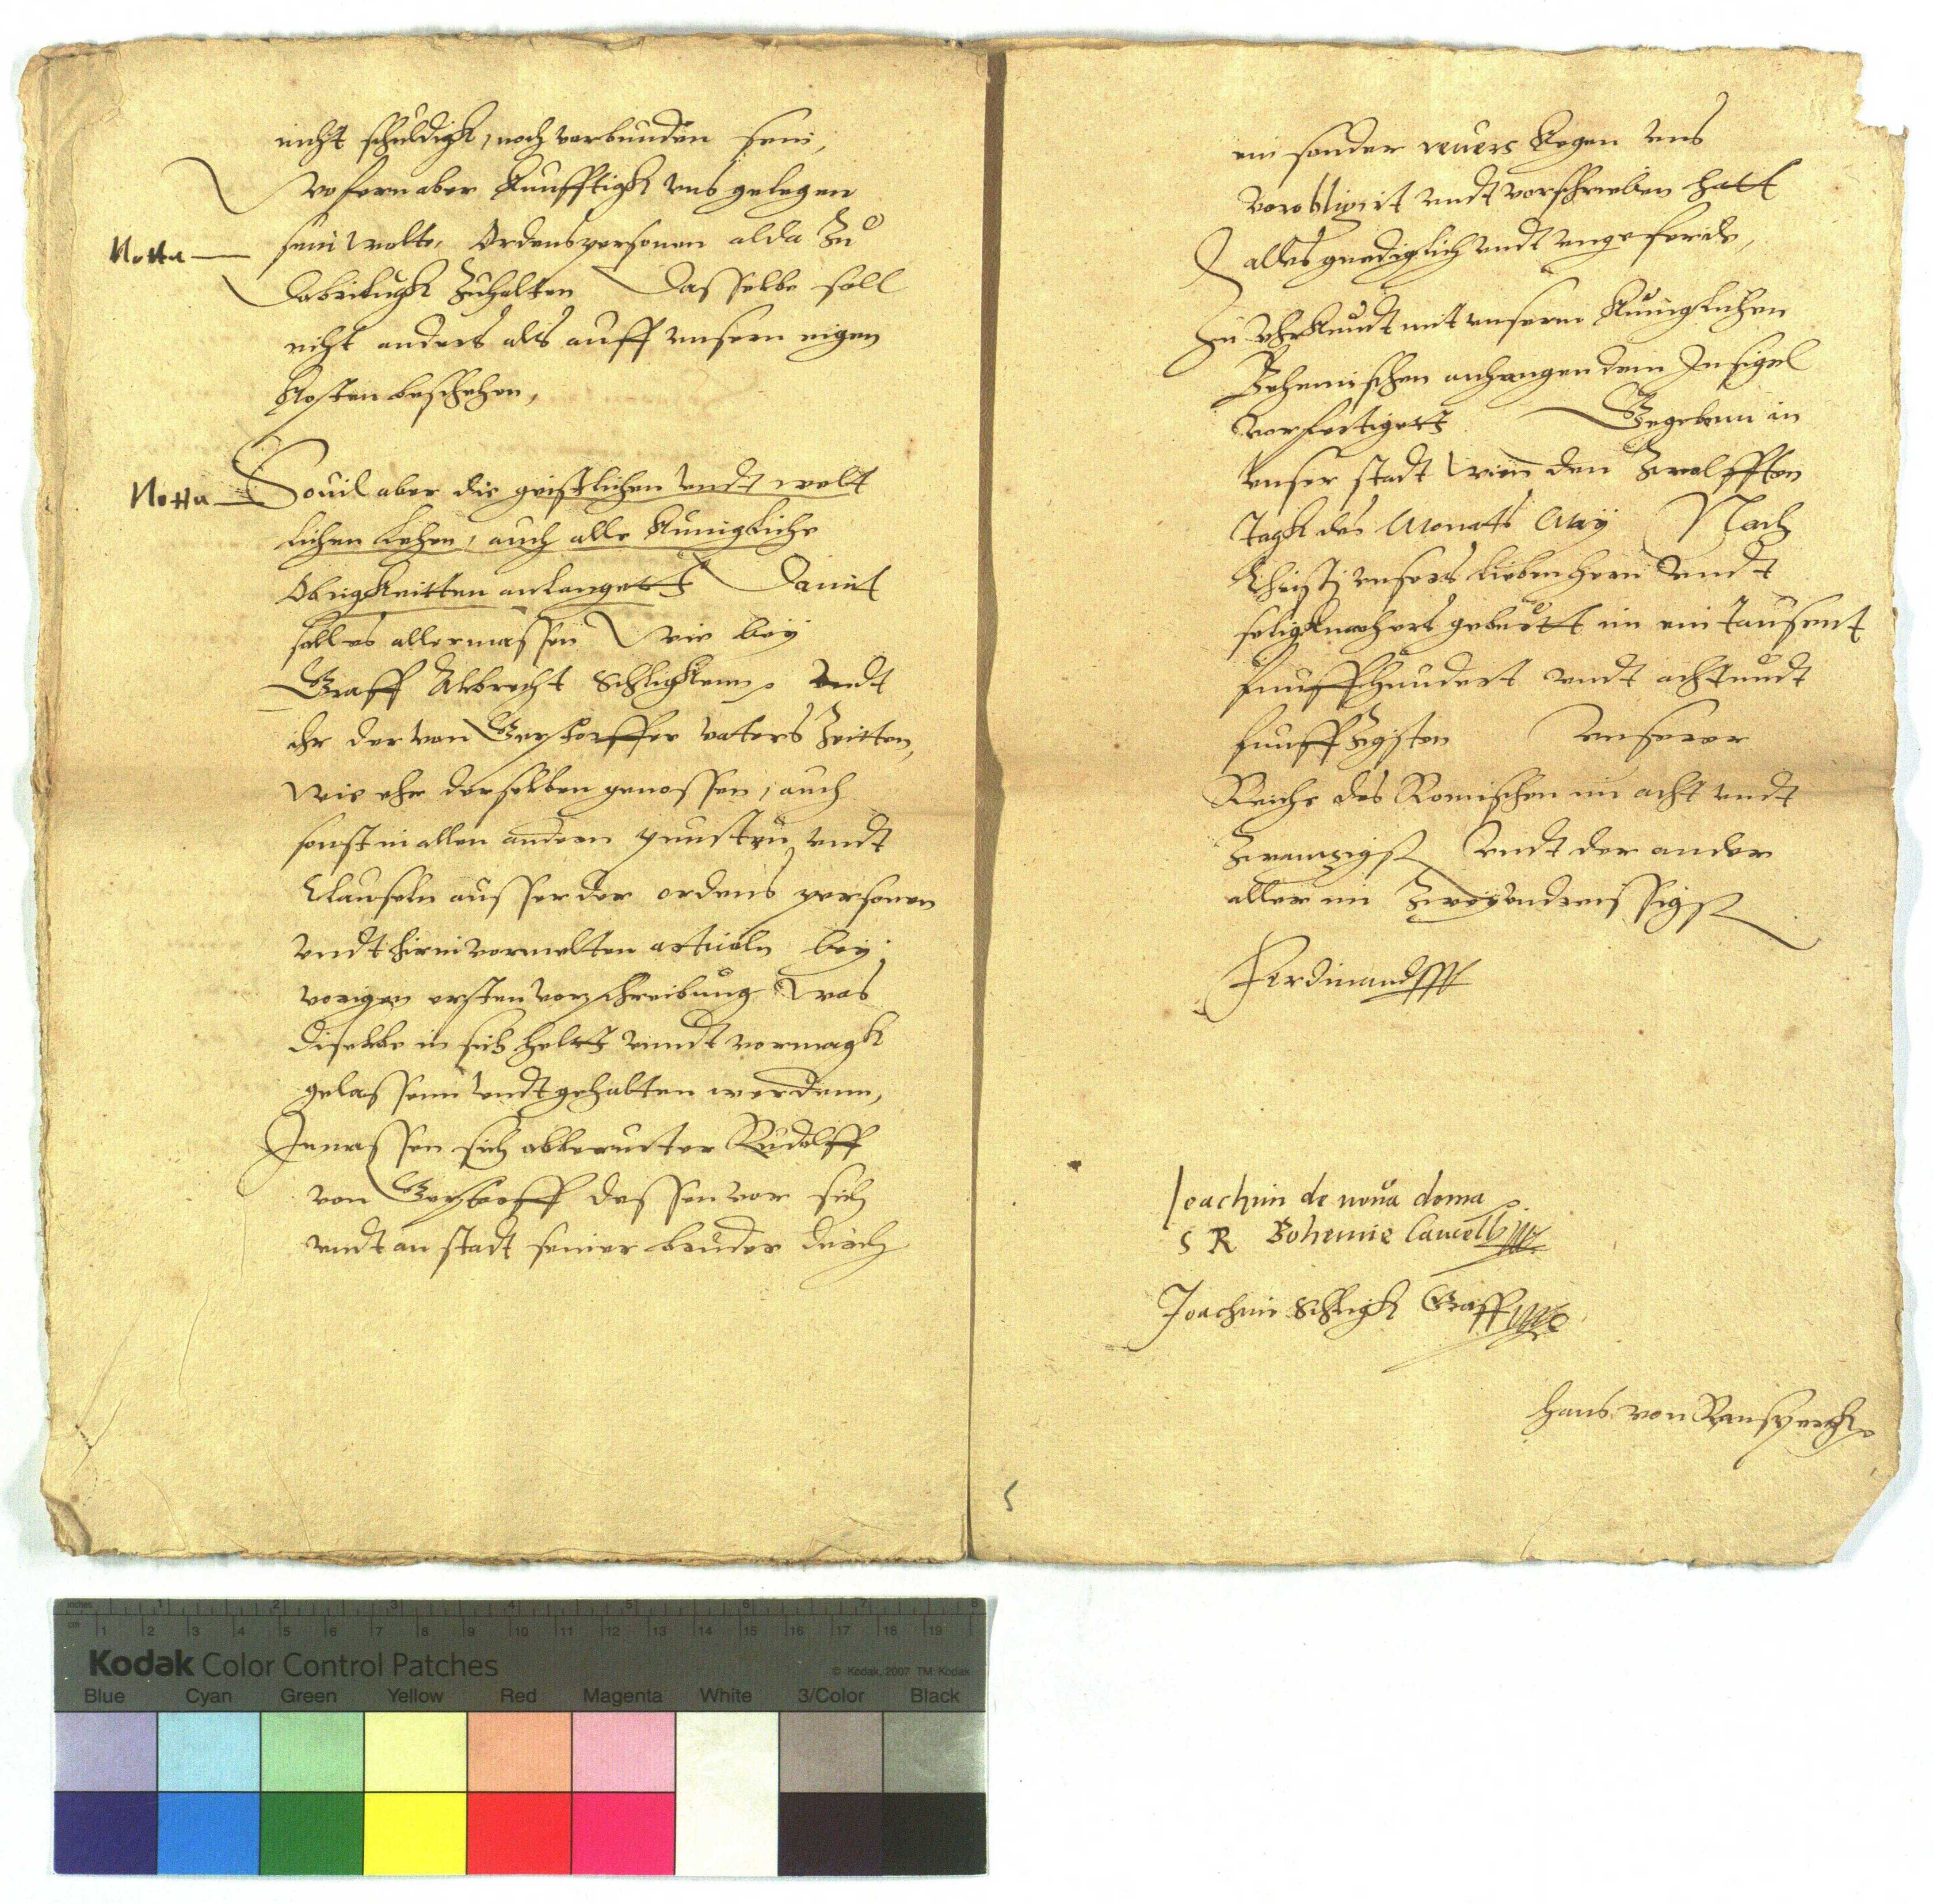 nicht schuldigk, noch vorbunden sein,
wofern aber kunfftigk uns gelegen
Notta
sein wolte, Ordenspersonen alda zu
Dobrilugk zuhalten Dasselbe soll
nicht anders als auff unsern eigen
Kosten beschehen,
Notta
Souil aber die geistlichen undt welt
lichen Lehen, auch alle Kunigkliche
Obrigkeitten anlangett Damit
soll es allermassen wie bey
Graff Albrecht Schligken undt
ihr der von Gerstorffer vaters Zeitten,
wie ehr derselben genossen, auch
sonst in allen andern puncten undt
Clauseln ausser der ordens personen
undt hirin vormelten articeln bey
vorigen ersten vorschreibung was
diselbe in sich heltt unndt vormagk
gelassenn undt gehalten werdenn,
Inmassen sich obberurter Rudolff
von Gerstorff dessen vor sich
undt an stadt seiner bruder durch
ein sonder revers kegen uns
vorobligirt undt vorschrieben hatt
alles gnediglich undt ungeferde,
Zu Uhrkundt mit unserm Kunigklichen
Behemischen anhangendem Insigel
vorfertigett Gegebenn in
unser stadt Wien den Zwolfften
Tagk des Monatts May Nach
Christi unsers lieben hern undt
seligkmachers geburtt im ein tausent
funffhundert undt achtundt
funffzigsten unserer
Reiche des Romischen im acht undt
zwanzigst undt der ander
aller im Zweyundreissigst
Ferdinandt
Joachim de noua doma
S R Bohemie Cancell
Joachim Schligk Graff
Hans von
5
Kodak Color Control Patches
© Kodak, 2007 TM: Kodak
Blue Cyan Green Yellow Red Magenta White 3/Color Black